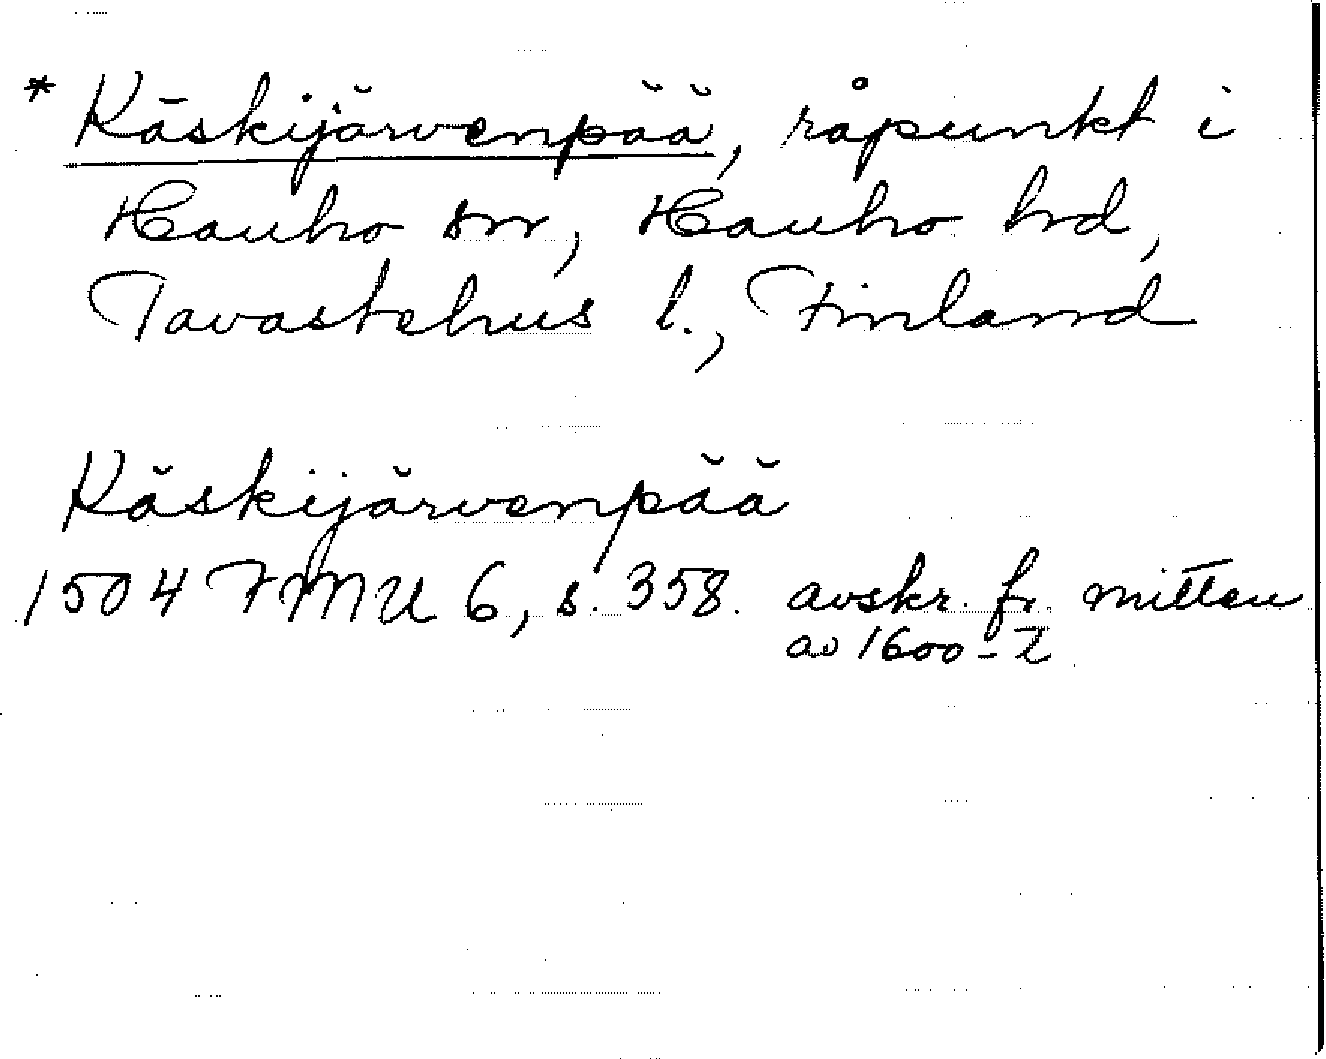 * Käskijärvenpää, råpunkt i
Hauho sn, Hauho hd,
Tavastehus l., Finland
Käskijärvenpää
1504 FMU 6, s. 358. avskr. fr. mitten
av 1600-t